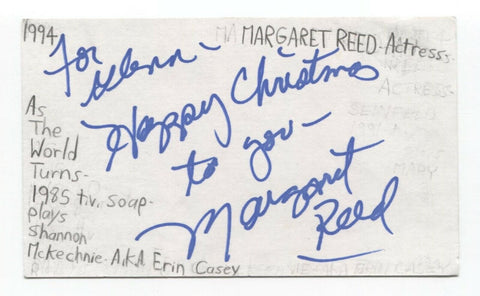 1994
MARGARET REED-Actress-
For Glenn-
Happy Christmas
to you-
Margaret
Reed
As
The
World
Turns-
1985 t.v. soap-
plays
Shannon
McKechnie-A.K.A Erin Casey
ACTRESS-
SEINFELD
MARY